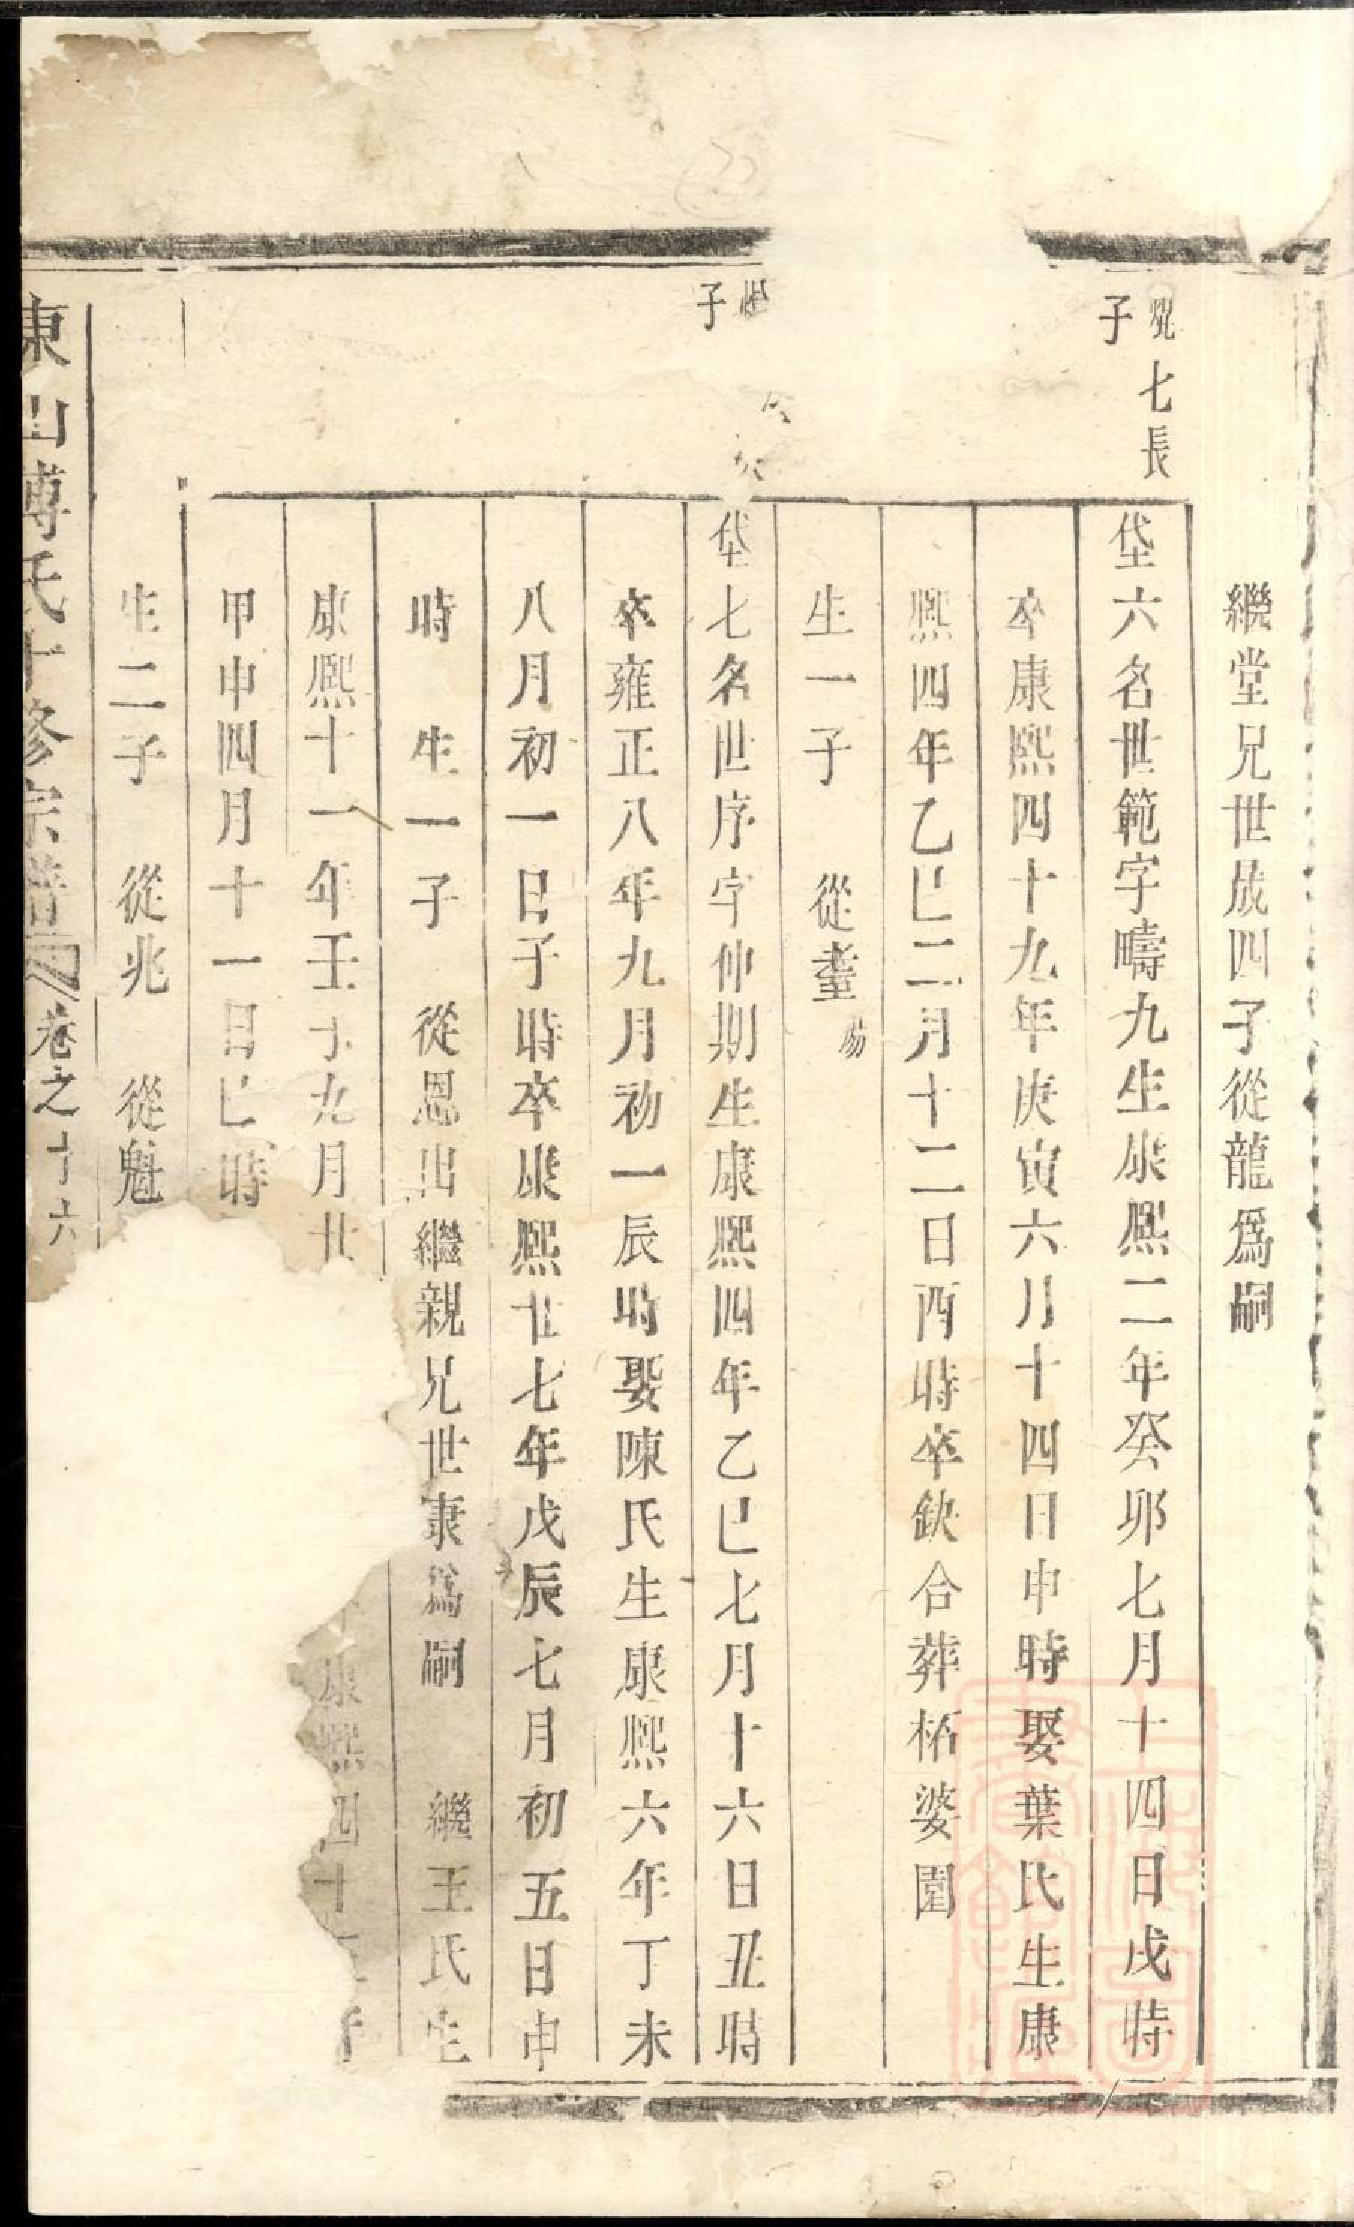 繼堂兄世成四子從龍爲嗣
七長
子
垡六名世範字疇九生康熙二年癸卯七月十四日戌時
卒康熙四十九年庚寅六月十四日申時娶葉氏生康
熙四年乙巳二月十二日酉時卒缺合葬柘婆園
生一子 從耋 殤
子
垡七名世序字仲期生康熙四年乙巳七月十六日丑時
卒雍正八年九月初一辰時娶陳氏生康熙六年丁未
八月初一日子時卒康熙廿七年戊辰七月初五日申
時 生一子 從恩出繼親兄世隶爲嗣 繼王氏生
康熙十一年壬子九月廿 康熙四十
甲申四月十一日巳時
生二子 從兆 從魁
東山傅氏十修宗譜 卷之十六